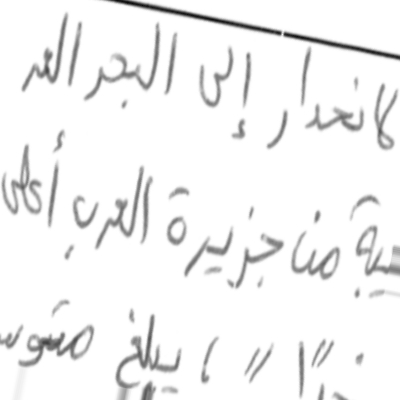 لانحدار إلى البحر الغر
بية من جزيرة العرب أعلى
"ًا" ، يبلغ متوس